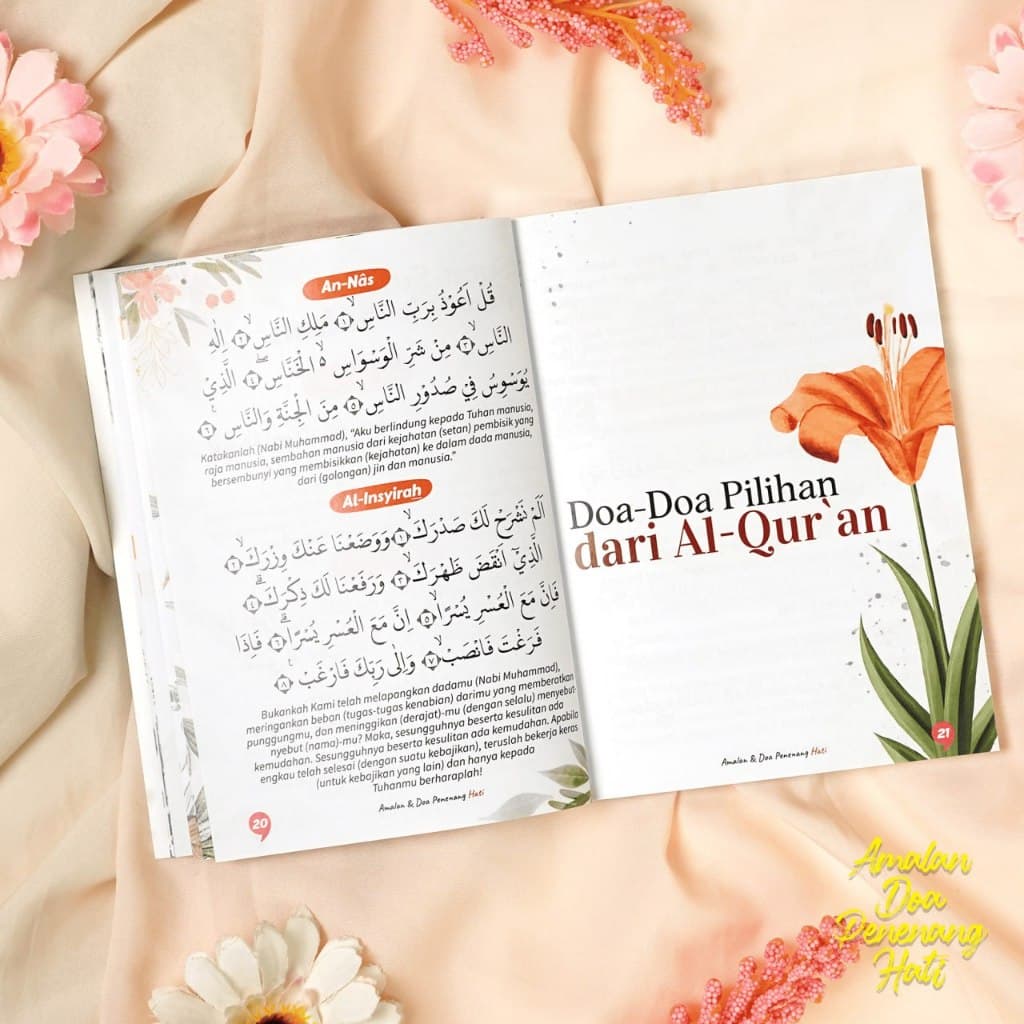 An-Nâs
قُلْ اَعُوْذُ بِرَبِّ النَّاسِۙ ١ مَلِكِ النَّاسِۙ ٢ اِلٰهِ
النَّاسِۙ ٣ مِنْ شَرِّ الْوَسْوَاسِ ەۙ الْخَنَّاسِۖ ٤ الَّذِيْ
يُوَسْوِسُ فِيْ صُدُوْرِ النَّاسِۙ ٥ مِنَ الْجِنَّةِ وَالنَّاسِ ࣖ ٦
Katakanlah (Nabi Muhammad), “Aku berlindung kepada Tuhan manusia,
raja manusia, sembahan manusia dari kejahatan (setan) pembisik yang
bersembunyi yang membisikkan (kejahatan) ke dalam dada manusia,
dari (golongan) jin dan manusia.”
Al-Insyirah
اَلَمْ نَشْرَحْ لَكَ صَدْرَكَۙ ١ وَوَضَعْنَا عَنْكَ وِزْرَكَۙ ٢
الَّذِيْٓ اَنْقَضَ ظَهْرَكَۙ ٣ وَرَفَعْنَا لَكَ ذِكْرَكَۗ ٤
فَاِنَّ مَعَ الْعُسْرِ يُسْرًاۙ ٥ اِنَّ مَعَ الْعُسْرِ يُسْرًاۗ ٦ فَاِذَا
فَرَغْتَ فَانْصَبْۙ ٧ وَاِلٰى رَبِّكَ فَارْغَبْ ࣖ ٨
Bukankah Kami telah melapangkan dadamu (Nabi Muhammad),
meringankan beban (tugas-tugas kenabian) darimu yang memberatkan
punggungmu, dan meninggikan (derajat)-mu (dengan selalu) menyebut-
nyebut (nama)-mu? Maka, sesungguhnya beserta kesulitan ada
kemudahan. Sesungguhnya beserta kesulitan ada kemudahan. Apabila
engkau telah selesai (dengan suatu kebajikan), teruslah bekerja keras
(untuk kebajikan yang lain) dan hanya kepada
Tuhanmu berharaplah!
Amalan & Doa Penenang Hati
20
Doa-Doa Pilihan
dari Al-Qur`an
Amalan & Doa Penenang Hati
21
Amalan
Doa
Penenang
Hati